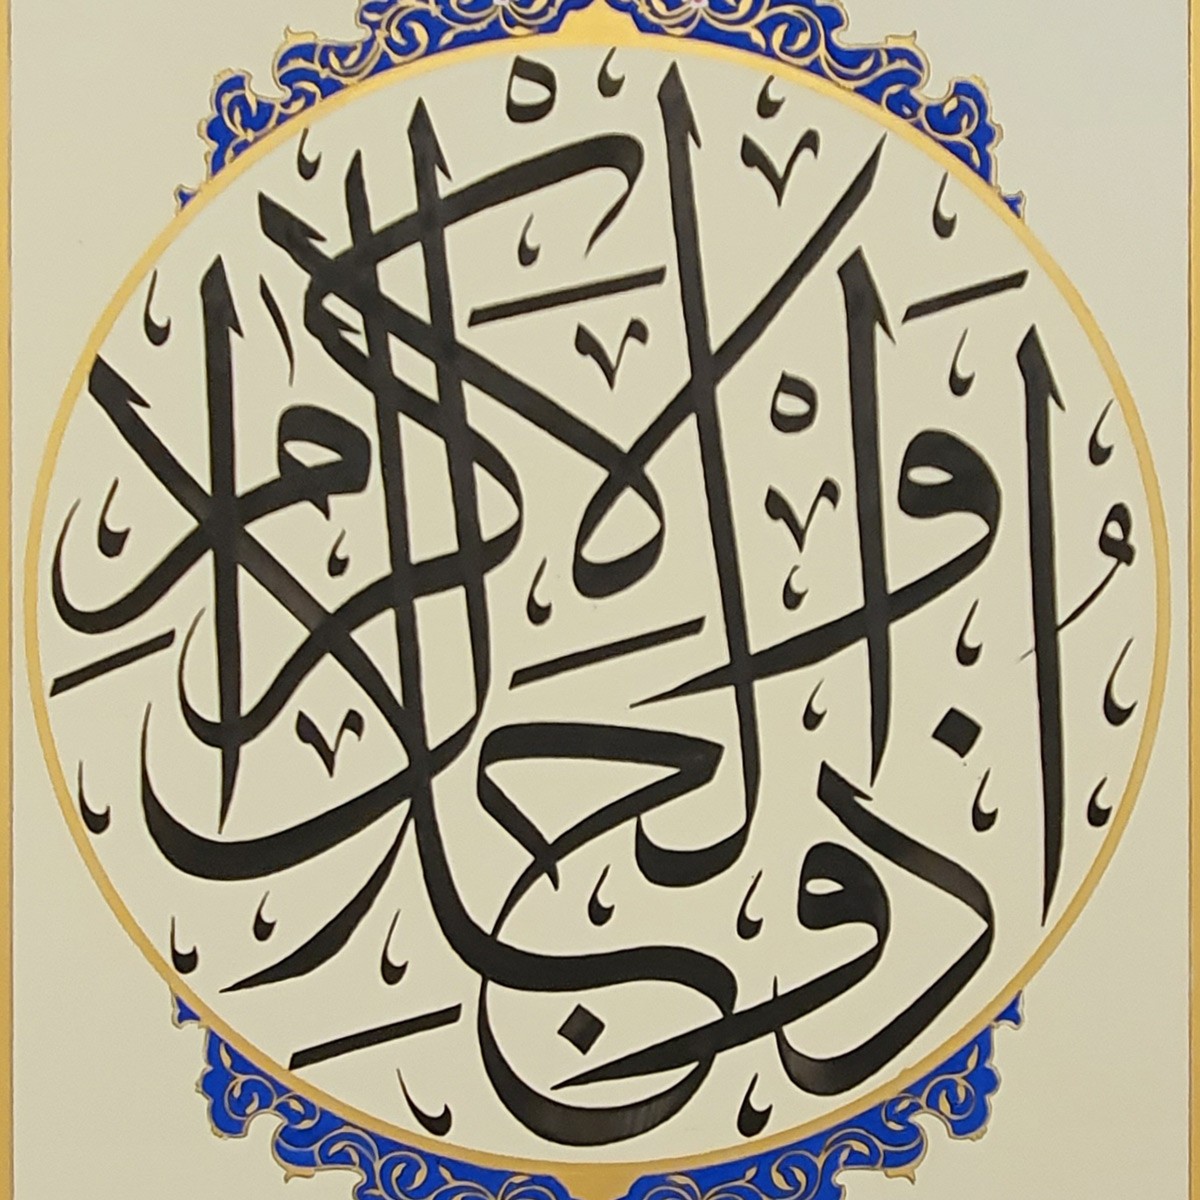 ذُو الْجَلَالِ وَالْاِكْرَامِ